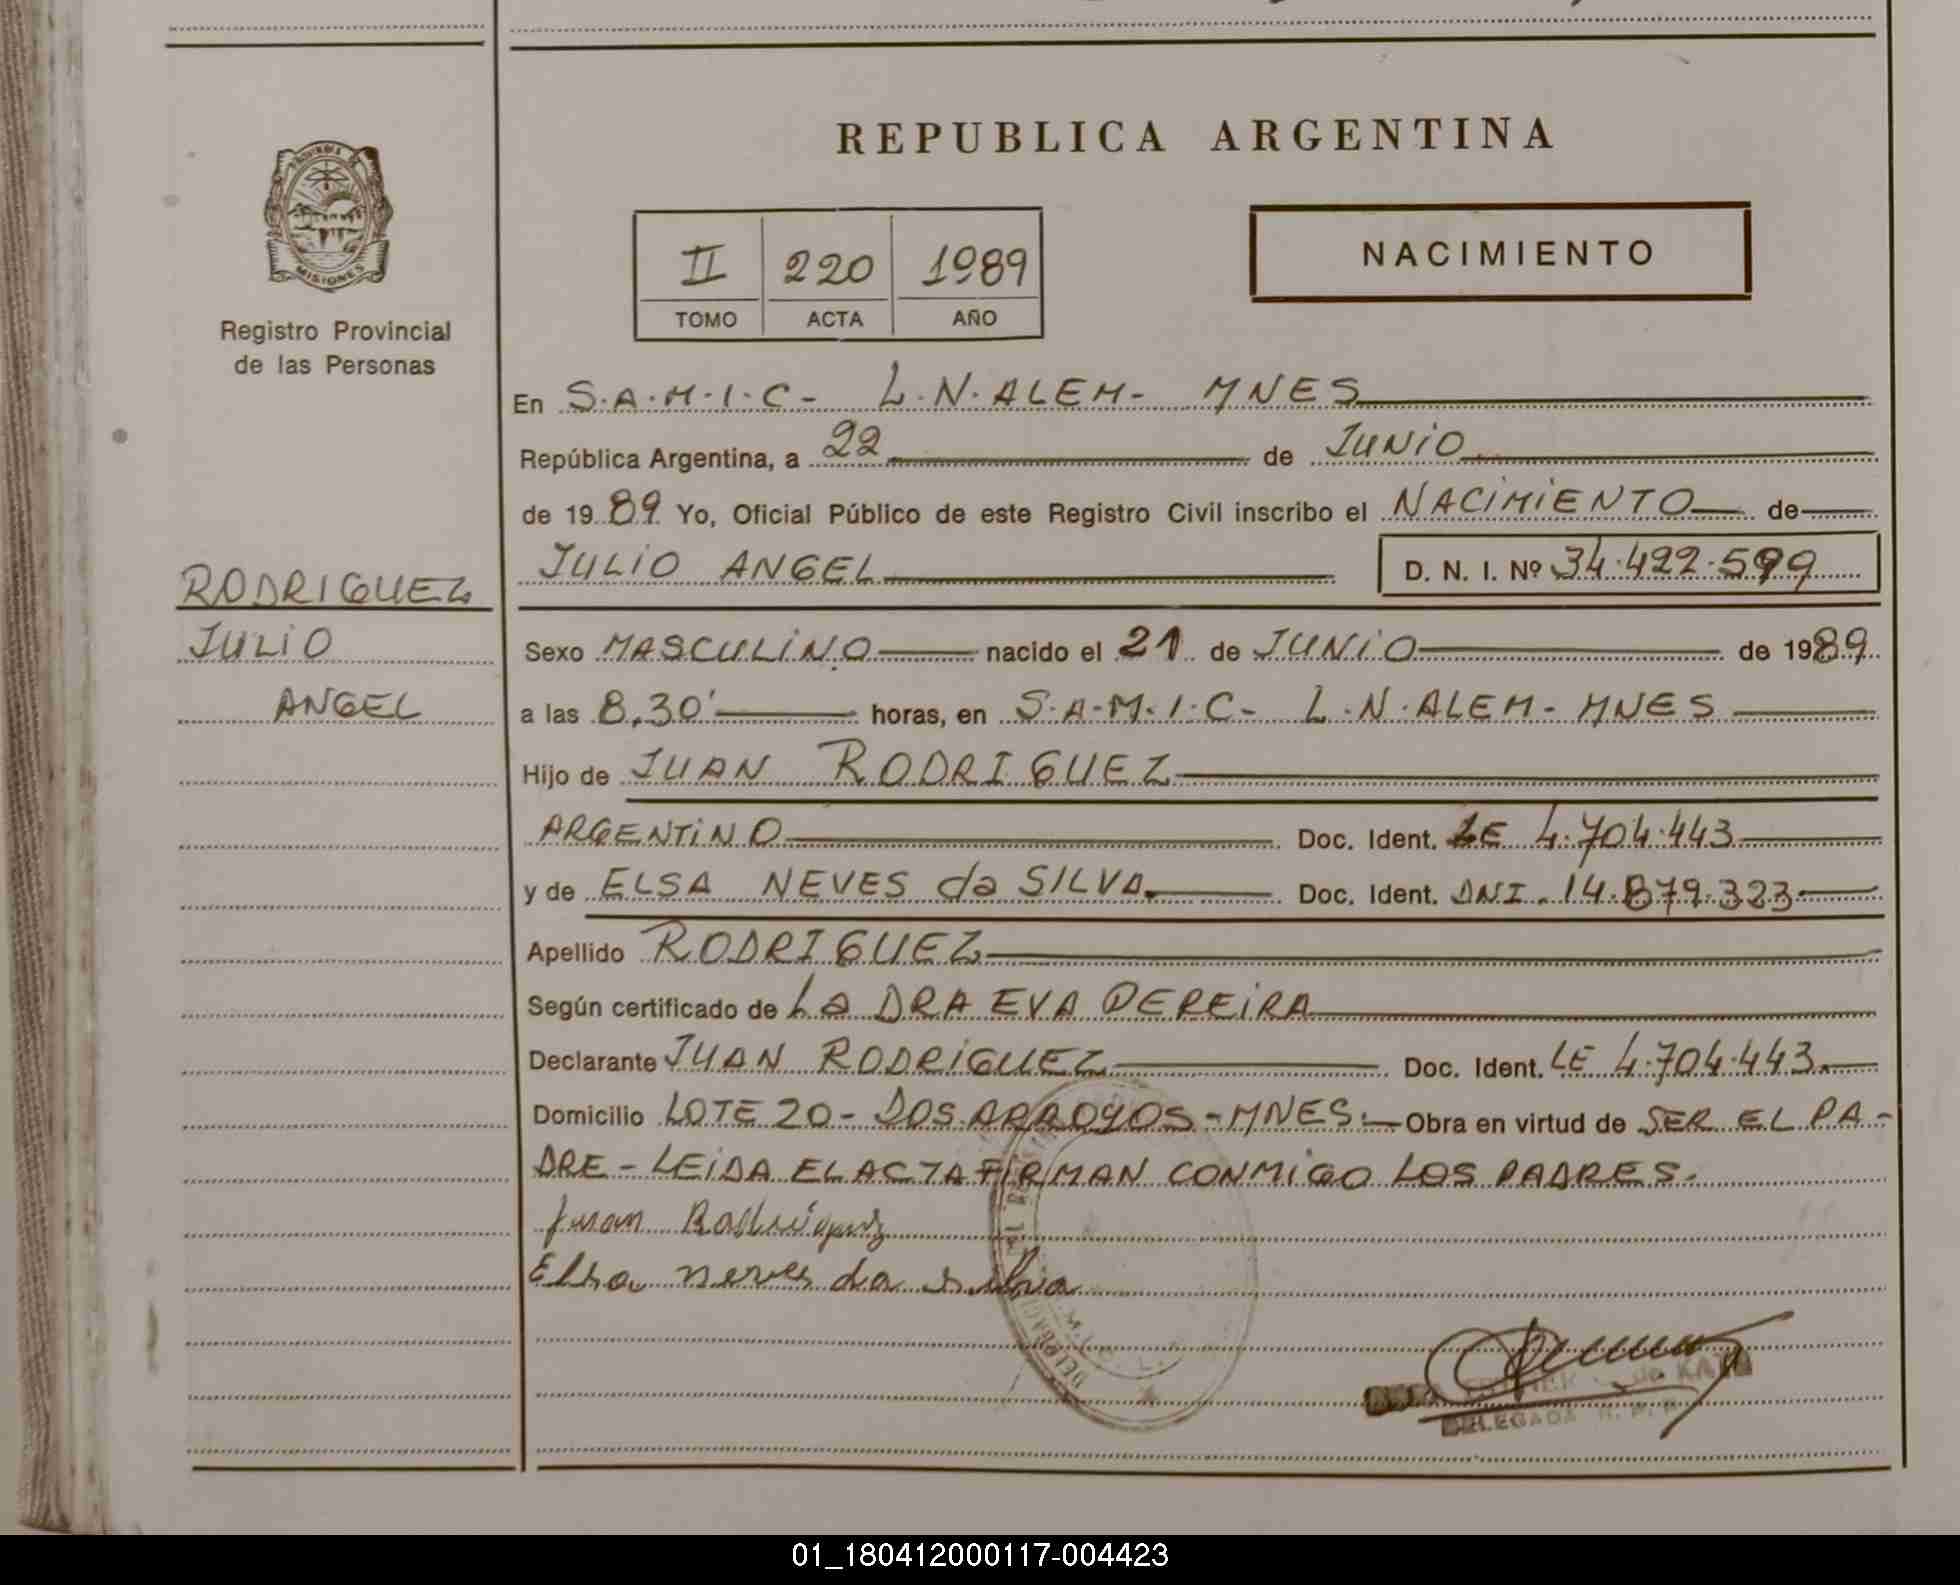 REPUBLICA ARGENTINA
PROVINCIA DE
MISIONES
Registro Provincial
de las Personas
II 220 1989
TOMO ACTA AÑO
NACIMIENTO
En S.A.M.I.C- L.N.ALEM- MNES
República Argentina, a 22 de JUNIO
de 1989 Yo, Oficial Público de este Registro Civil inscribo el NACIMIENTO de
JULIO ANGEL D. N. I. Nº 34.422.599
RODRIGUEZ
JULIO
ANGEL
Sexo MASCULINO nacido el 21 de JUNIO de 1989
a las 8,30' horas, en S.A.M.I.C- L.N.ALEM- MNES
Hijo de JUAN RODRIGUEZ
ARGENTINO Doc. Ident. LE 4.704.443
y de ELSA NEVES da SILVA. Doc. Ident. DNI. 14.879.323
Apellido RODRIGUEZ
Según certificado de La DRA EVA PEREIRA
Declarante JUAN RODRIGUEZ Doc. Ident. LE 4.704.443.
Domicilio LOTE 20- DOS ARROYOS-MNES. Obra en virtud de SER EL PA-
DRE- LEIDA EL ACTA FIRMAN CONMIGO LOS PADRES.
Juan Rodriguez
Elsa neves da silva
DELEGADA R. P. P.
01_180412000117-004423